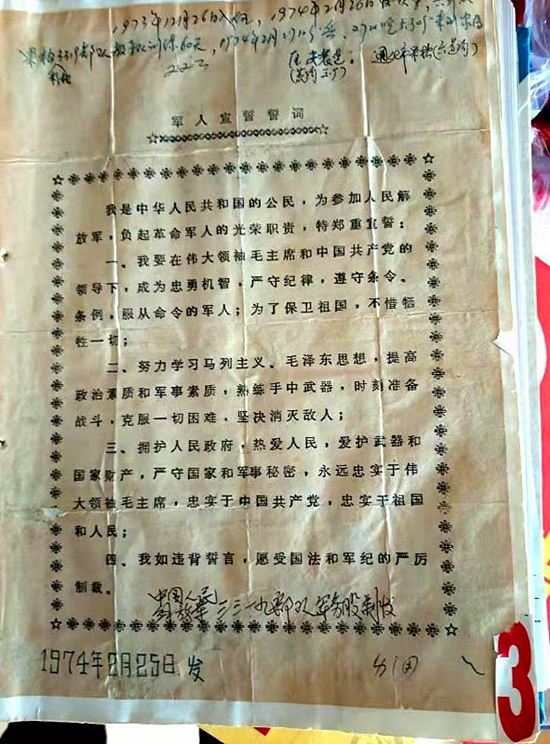 1973年12月26日入伍，1974年2月26日
训练60天，1974年2月27日
军人宣誓誓词
我是中华人民共和国的公民，为参加人民解
放军，负起革命军人的光荣职责，特郑重宣誓：
一、我要在伟大领袖毛主席和中国共产党的
领导下，成为忠勇机智，严守纪律，遵守条令、
条例，服从命令的军人；为了保卫祖国，不惜牺
牲一切；
二、努力学习马列主义、毛泽东思想，提高
政治素质和军事素质，熟练手中武器，时刻准备
战斗，克服一切困难，坚决消灭敌人；
三、拥护人民政府，热爱人民，爱护武器和
国家财产，严守国家和军事秘密，永远忠实于伟
大领袖毛主席，忠实于中国共产党，忠实于祖国
和人民；
四、我如违背誓言，愿受国法和军纪的严厉
制裁。
中国人民
解放军三三一九部队军务股制发
1974年2月25日发
3